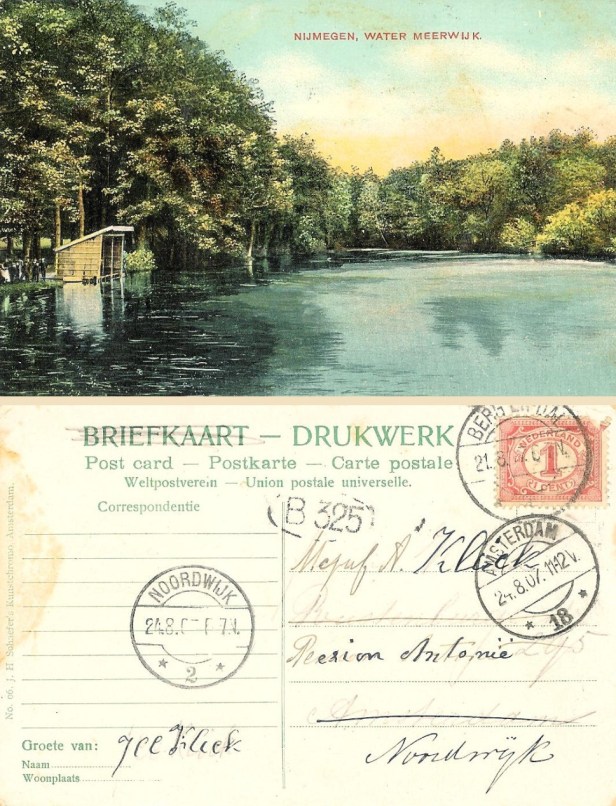 NIJMEGEN, WATER MEERWIJK.
BRIEFKAART — DRUKWERK
Post card — Postkarte — Carte postale
Weltpostverein — Union postale universelle.
Correspondentie
BERG EN DAL
21.8.
NEDERLAND
1
(1 CENT)
B 325
AMSTERDAM
24.8.07. 11-12 V.
* 18 *
NOORDWIJK
24.8. 6-7 V.
* 2 *
Mejuf A. Kleek
Pension Antonië
Amsterdam
Noordwijk
Groete van: Kleek
Naam
Woonplaats
No. 66. J. H. Schaefer's Kunstchromo, Amsterdam.